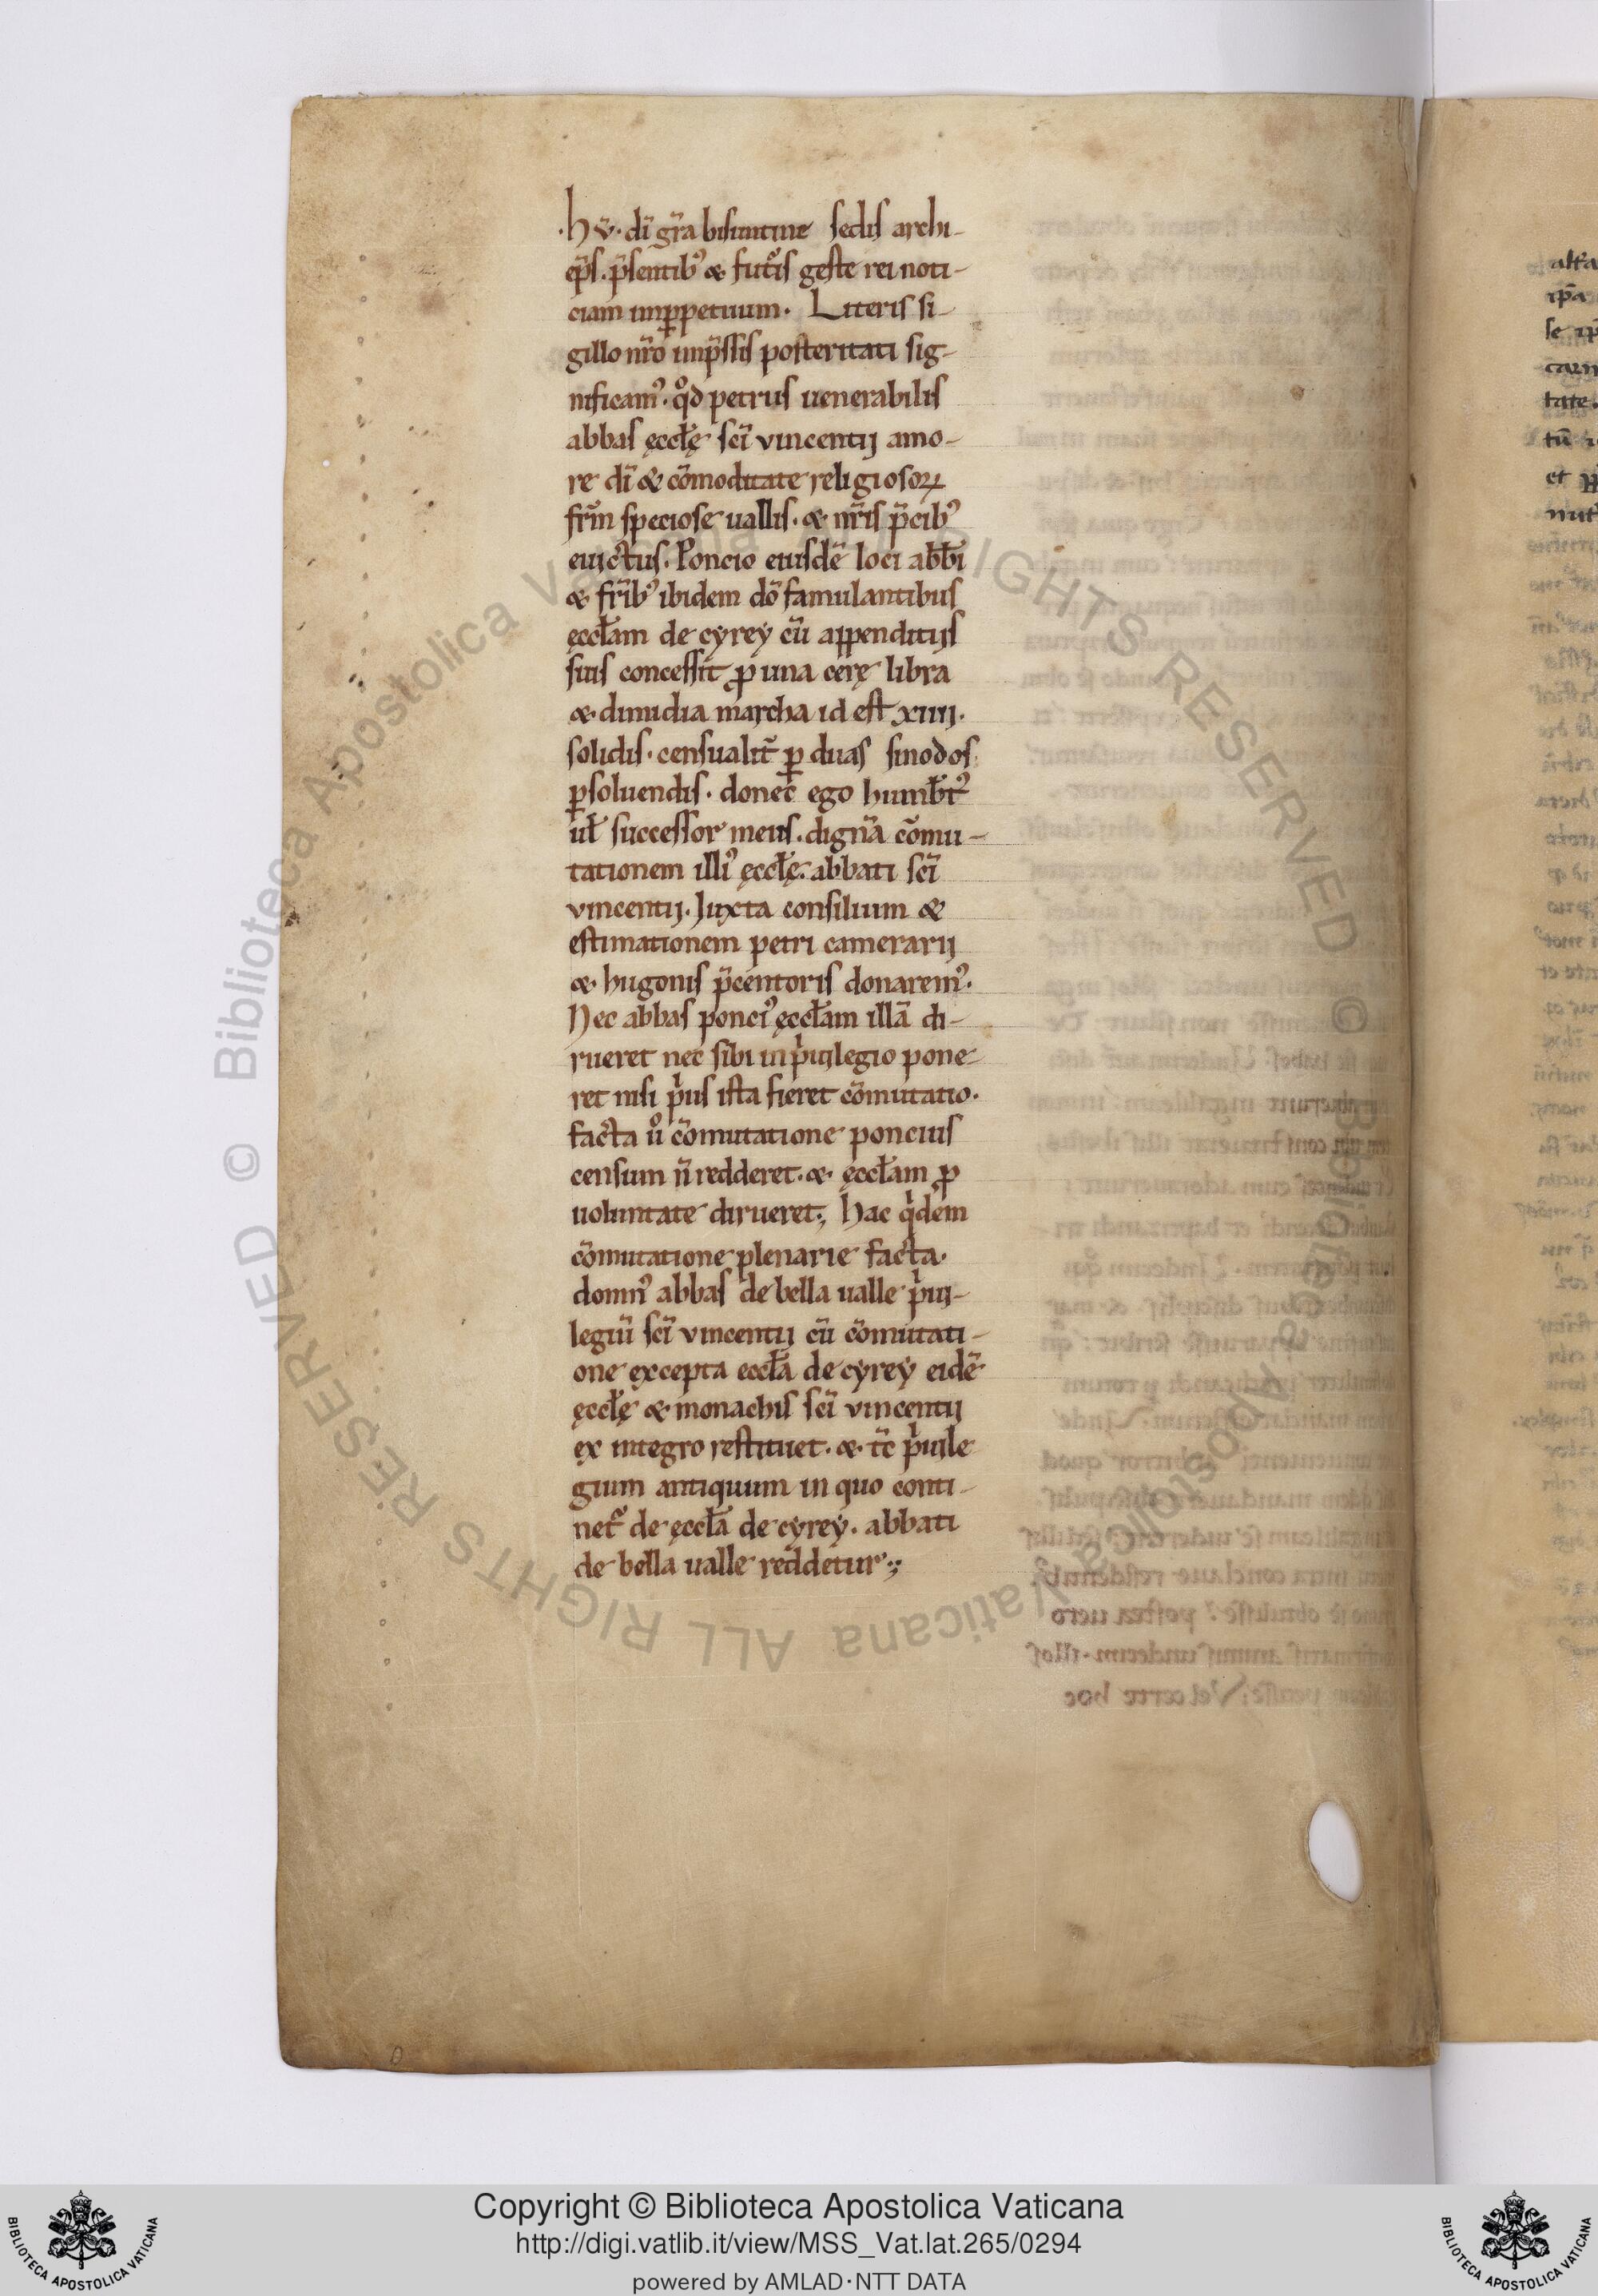 .h v̄. dī grā bisuntine sedis archi-
ep̄s. p̄sentib⁹ & fut᷒is geste rei noti-
ciam inꝑpetuum. Literis si-
gillo nr̄o imp̄ssis posteritati sig-
nificam⁹. qͦd petrus uenerabilis
abbas ęccłę sc̄i vincentij amo-
re dī & cōmoditate religiosoꝝ
fr̄m speciose uallis. & nr̄is p̄cib⁹
euictus. Poncio eiusdē loci abb̄i
& fr̄ib⁹ ibidem dō famulantibus
ęccłam de cyrey cū appenditijs
suis concessit ꝓ una cerę libra
& dimidia marcha id est xiiij.
solidis. censualit̄ ꝑ duas sinodos
ꝑsoluendis. donec ego humb̄t⁹
ut̄ successor meus. dignā cōmu-
tationem illi⁹ ęccłę. abbati sc̄i
vincentij. Iuxta consilium &
estimationem petri camerarij
& hugonis p̄centoris donarem⁹.
Nec abbas ponci⁹ ęccłam illā di-
rueret nec sibi in pⁱuilegio pone-
ret nisi pⁱus ista fieret cōmutatio.
facta uͦ cōmutatione poncius
censum n̄ redderet. & ęccłam ꝓ
uoluntate dirueret; hac qⁱdem
cōmutatione plenarie facta.
domn⁹ abbas de bella ualle pⁱui-
legiū sc̄i vincentij cū cōmutati-
one excepta eccła de cyrey eidē
ęccłę & monachis sc̄i vincentij
ex integro restituet. & tc̄ pⁱuile
gium antiquum in quo conti-
net᷑ de ęccła de cyrey. abbati
de bella ualle reddetur;
Copyright © Biblioteca Apostolica Vaticana
http://digi.vatlib.it/view/MSS_Vat.lat.265/0294
powered by AMLAD·NTT DATA
BIBLIOTECA APOSTOLICA VATICANA
BIBLIOTECA APOSTOLICA VATICANA
© Biblioteca Apostolica Vaticana ALL RIGHTS RESERVED
© Biblioteca Apostolica Vaticana ALL RIGHTS RESERVED